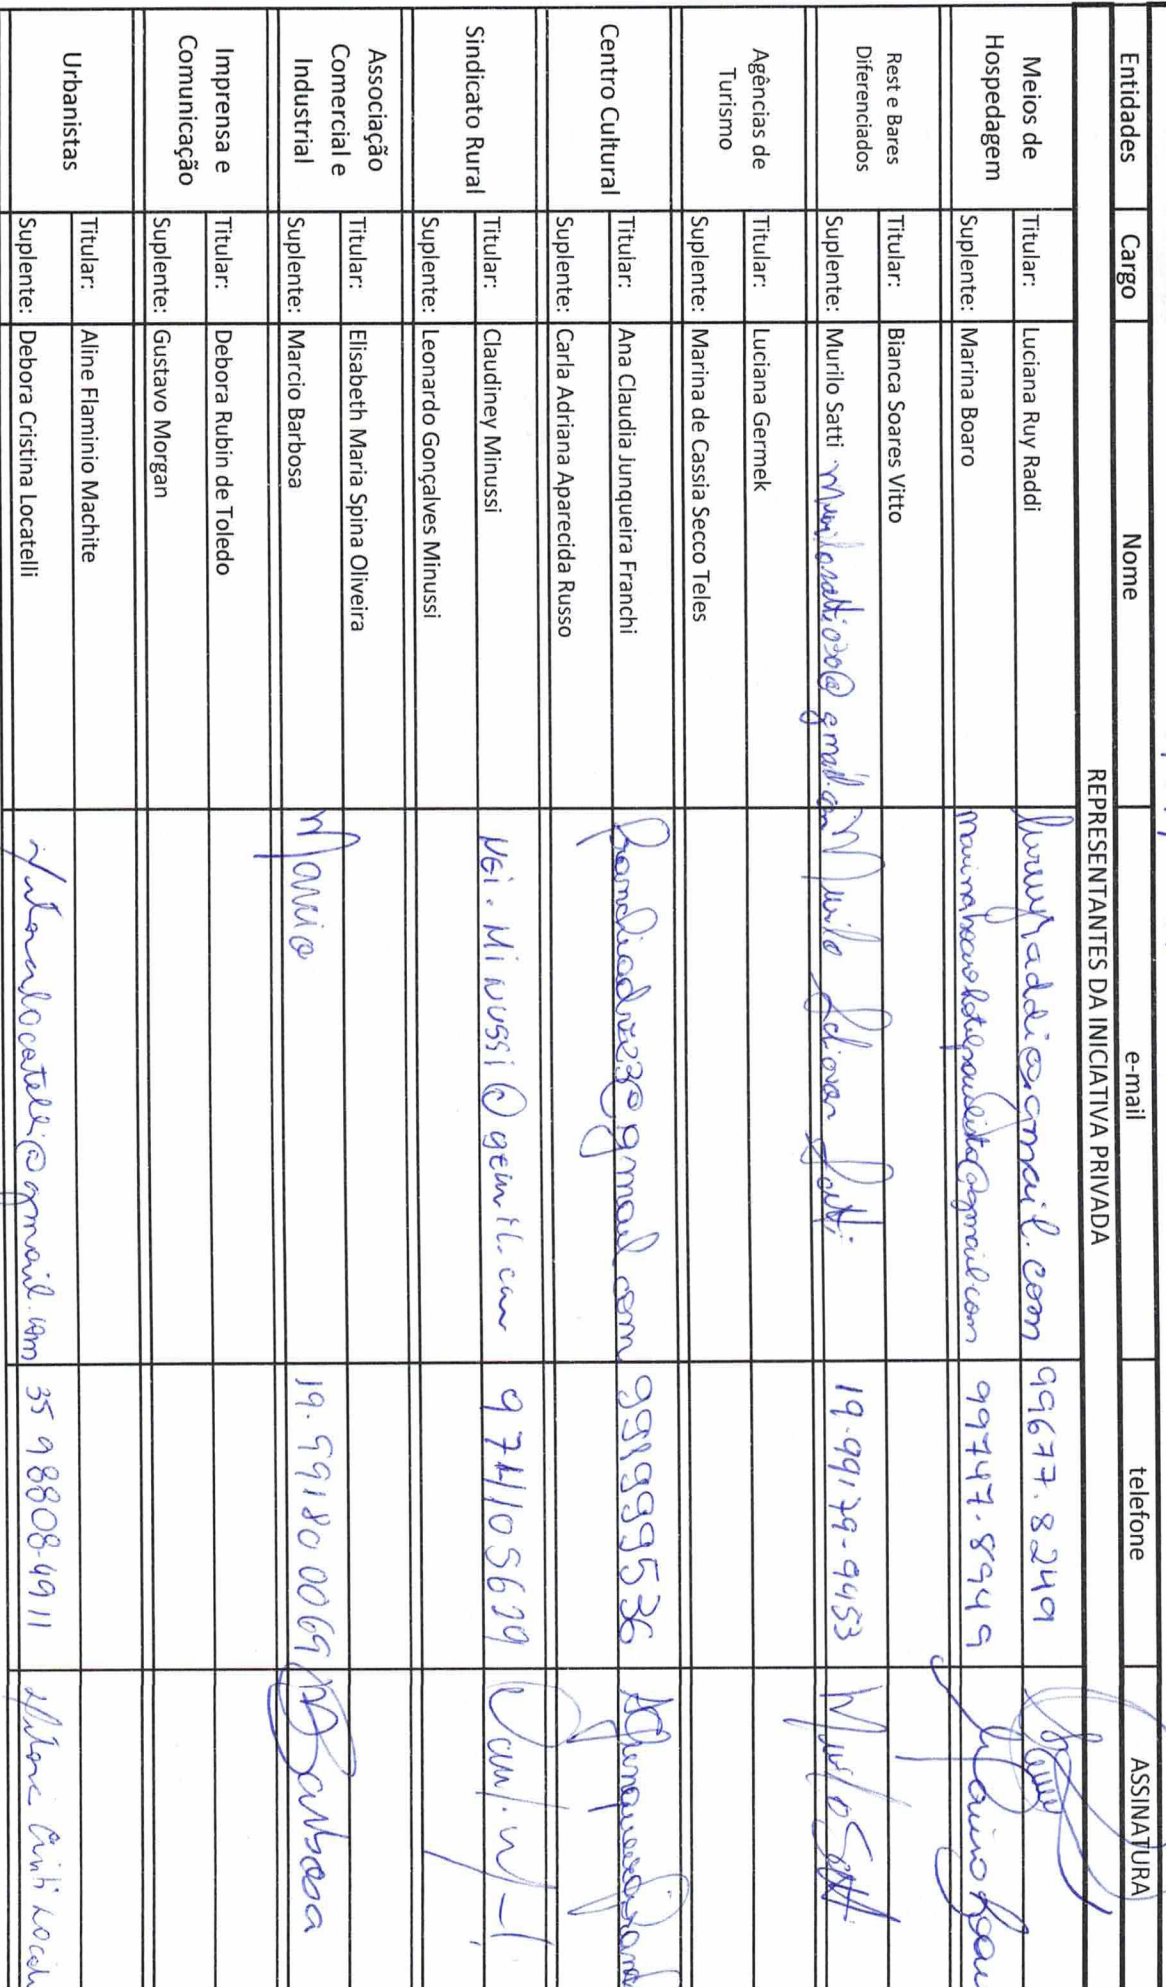 REPRESENTANTES DA INICIATIVA PRIVADA
Entidades Cargo Nome e-mail telefone ASSINATURA
Meios de Hospedagem
Titular: Luciana Ruy Raddi luruyraddi@gmail.com 99677.8249
Suplente: Marina Boaro marinaboarohotelpaulista@gmail.com 99747.8949 Marina Boaro
Rest e Bares Diferenciados
Titular: Bianca Soares Vitto
Suplente: Murilo Satti murilosatti020@gmail.com Murilo Satti 19.99179-9453 Murilo Satti
Agências de Turismo
Titular: Luciana Germek
Suplente: Marina de Cassia Secco Teles
Centro Cultural
Titular: Ana Claudia Junqueira Franchi gmail.com 991999536
Suplente: Carla Adriana Aparecida Russo
Sindicato Rural
Titular: Claudiney Minussi NEi.MiNUSSi@ 974105629
Suplente: Leonardo Gonçalves Minussi
Associação Comercial e Industrial
Titular: Elisabeth Maria Spina Oliveira
Suplente: Marcio Barbosa Marcio 19.991800069 Barbosa
Imprensa e Comunicação
Titular: Debora Rubin de Toledo
Suplente: Gustavo Morgan
Urbanistas
Titular: Aline Flaminio Machite
Suplente: Debora Cristina Locatelli @gmail.com 35 98808-4911